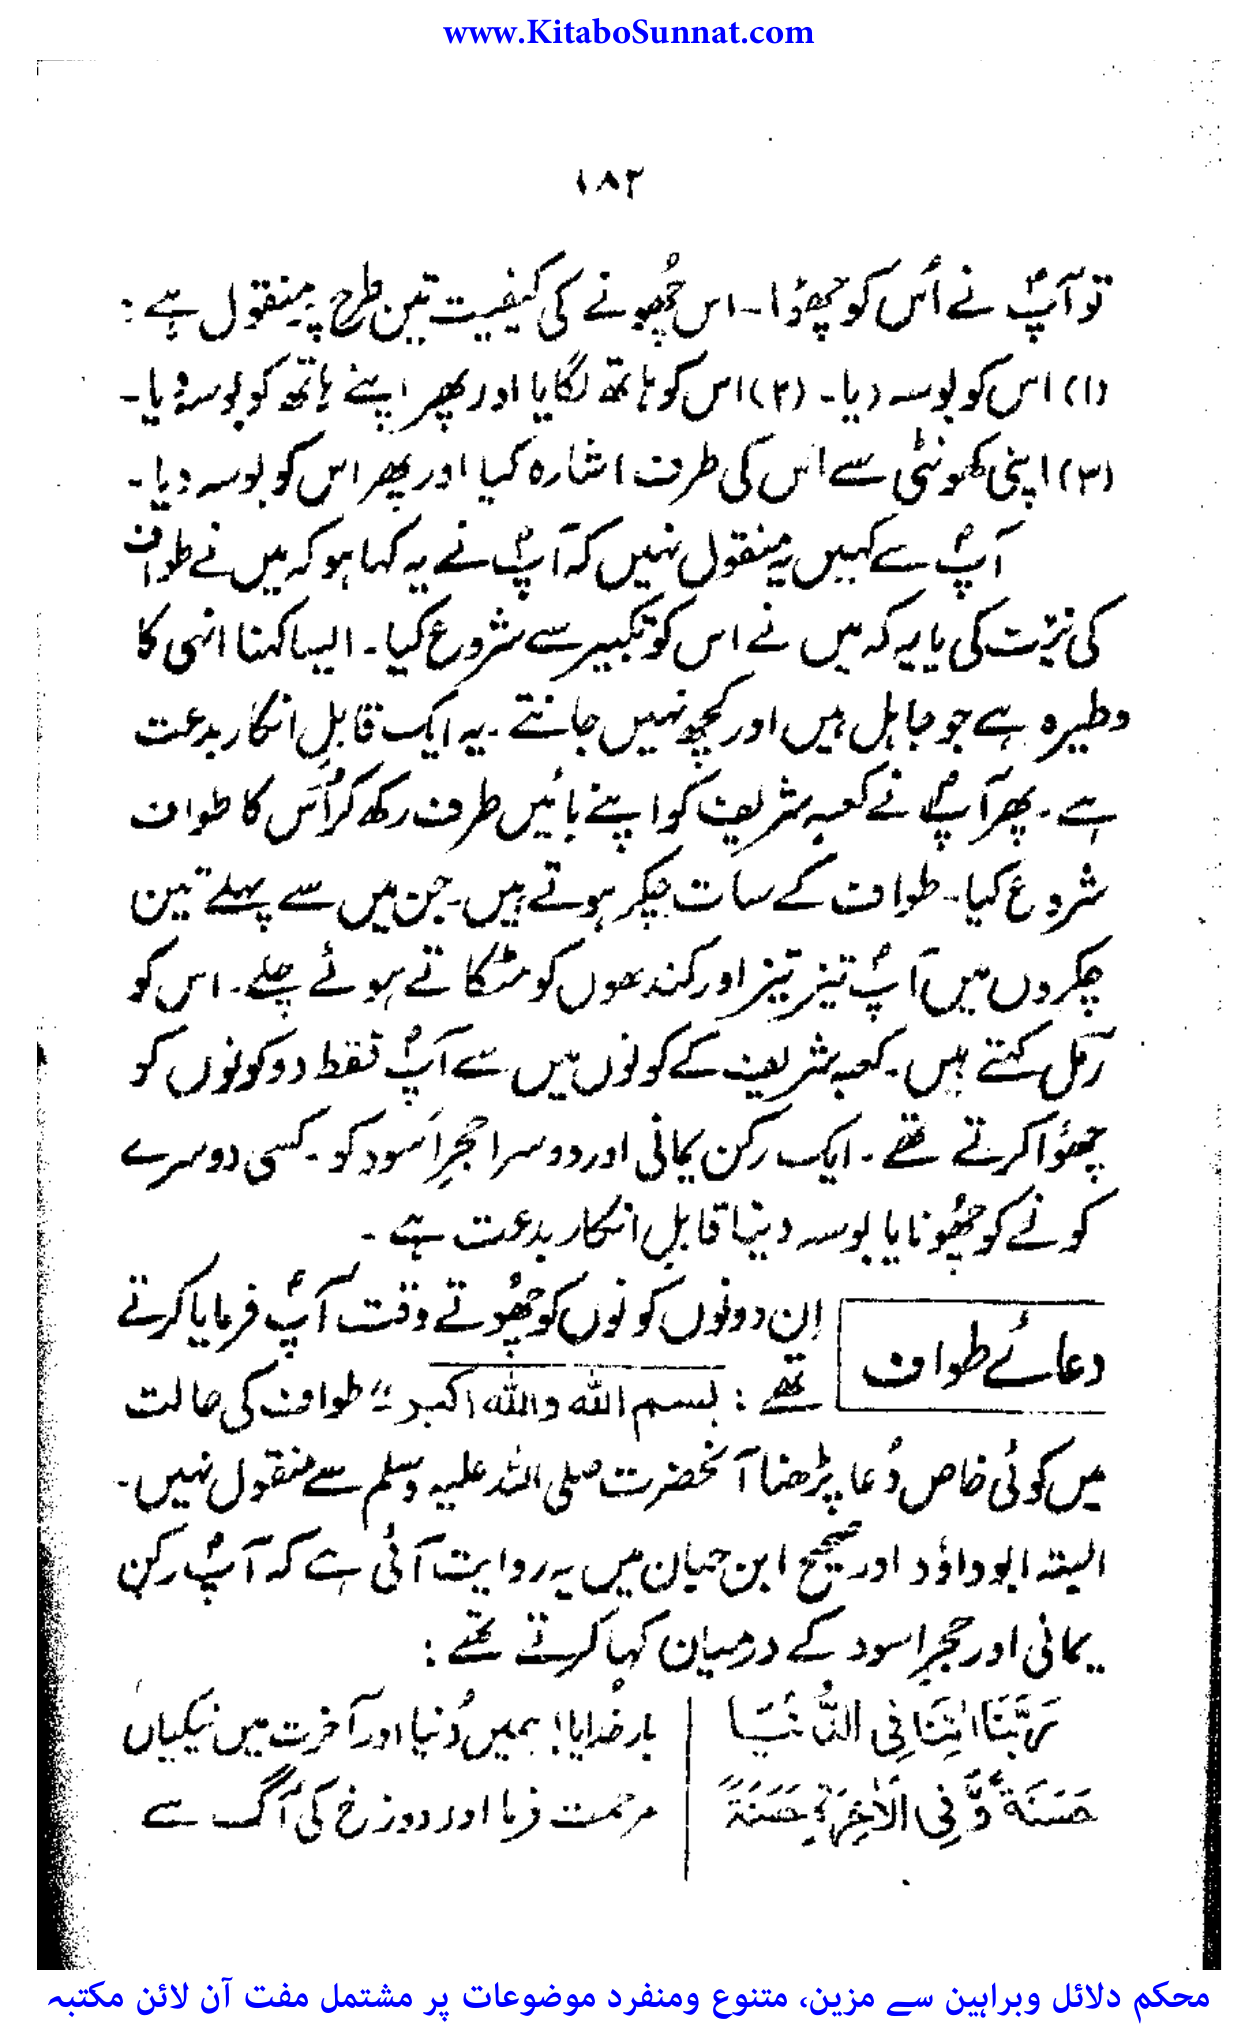 www.KitaboSunnat.com
۱۸۲
تو آپؐ نے اُس کو چھوڑا۔ اس چُھونے کی کیفیت تین طرح پر منقول ہے :
(۱) اس کو بوسہ دیا۔ (۲) اس کو ہاتھ لگایا اور پھر اپنے ہاتھ کو بوسہ دیا۔
(۳) اپنی کھونٹی سے اس کی طرف اشارہ کیا اور پھر اس کو بوسہ دیا۔
آپؐ سے کہیں یہ منقول نہیں کہ آپؐ نے یہ کہا ہو کہ میں نے طواف
کی نیّت کی یا یہ کہ میں نے اس کو تکبیر سے شروع کیا۔ ایسا کہنا انہی کا
وطیرہ ہے جو جاہل ہیں اور کچھ نہیں جانتے۔ یہ ایک قابلِ انکار بدعت
ہے۔ پھر آپؐ نے کعبہ شریف کو اپنے بائیں طرف رکھ کر اُس کا طواف
شروع کیا۔ طواف کے سات چکر ہوتے ہیں۔ جن میں سے پہلے تین
چکروں میں آپؐ تیز تیز اور کندھوں کو مٹکاتے ہوئے چلے۔ اس کو
رَمل کہتے ہیں۔ کعبہ شریف کے کونوں میں سے آپؐ فقط دو کونوں کو
چھؤا کرتے تھے۔ ایک رکن یمانی اور دوسرا حجرِ اَسود کو۔ کسی دوسرے
کونے کو چُھونا یا بوسہ دینا قابلِ انکار بدعت ہے۔
دعائے طواف
اِن دونوں کونوں کو چُھوتے وقت آپؐ فرمایا کرتے
تھے : بسم اللہ واللہ اکبر " طواف کی حالت
میں کوئی خاص دُعا پڑھنا آنحضرت صلی اللہ علیہ وسلم سے منقول نہیں۔
البتہ ابوداؤد اور صحیح ابن حبان میں یہ روایت آئی ہے کہ آپؐ رکن
یمانی اور حجرِ اسود کے درمیان کہا کرتے تھے :
رَبَّنَا اٰتِنَا فِی الدُّنْیَا
حَسَنَةً وَّ فِی الْاٰخِرَةِ حَسَنَةً
بار خُدایا! ہمیں دُنیا اور آخرت میں نیکیاں
مرحمت فرما اور دوزخ کی آگ سے
محکم دلائل وبراہین سے مزین، متنوع ومنفرد موضوعات پر مشتمل مفت آن لائن مکتبہ